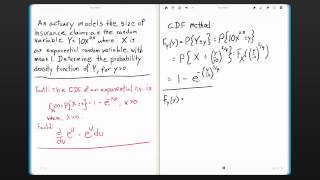 An actuary models the size of
insurance claims as the random
variable Y=10X^0.8 where X is
an exponential random variable with
mean 1. Determine the probability
density function of Y, for y>0.
Fact1: The CDF of an exponential r.v. is
F_X(x)=P{X≤x}=1-e^-λx,
when λ>0.
Fact2:
d/dx e^u = e^u du
CDF method:
F_Y(y)=P{Y≤y}=P{10X^0.8≤y}
=P{X≤(y/10)^5/4}=F_X((y/10)^5/4)
=1-e^-(y/10)^5/4
f_Y(y)=